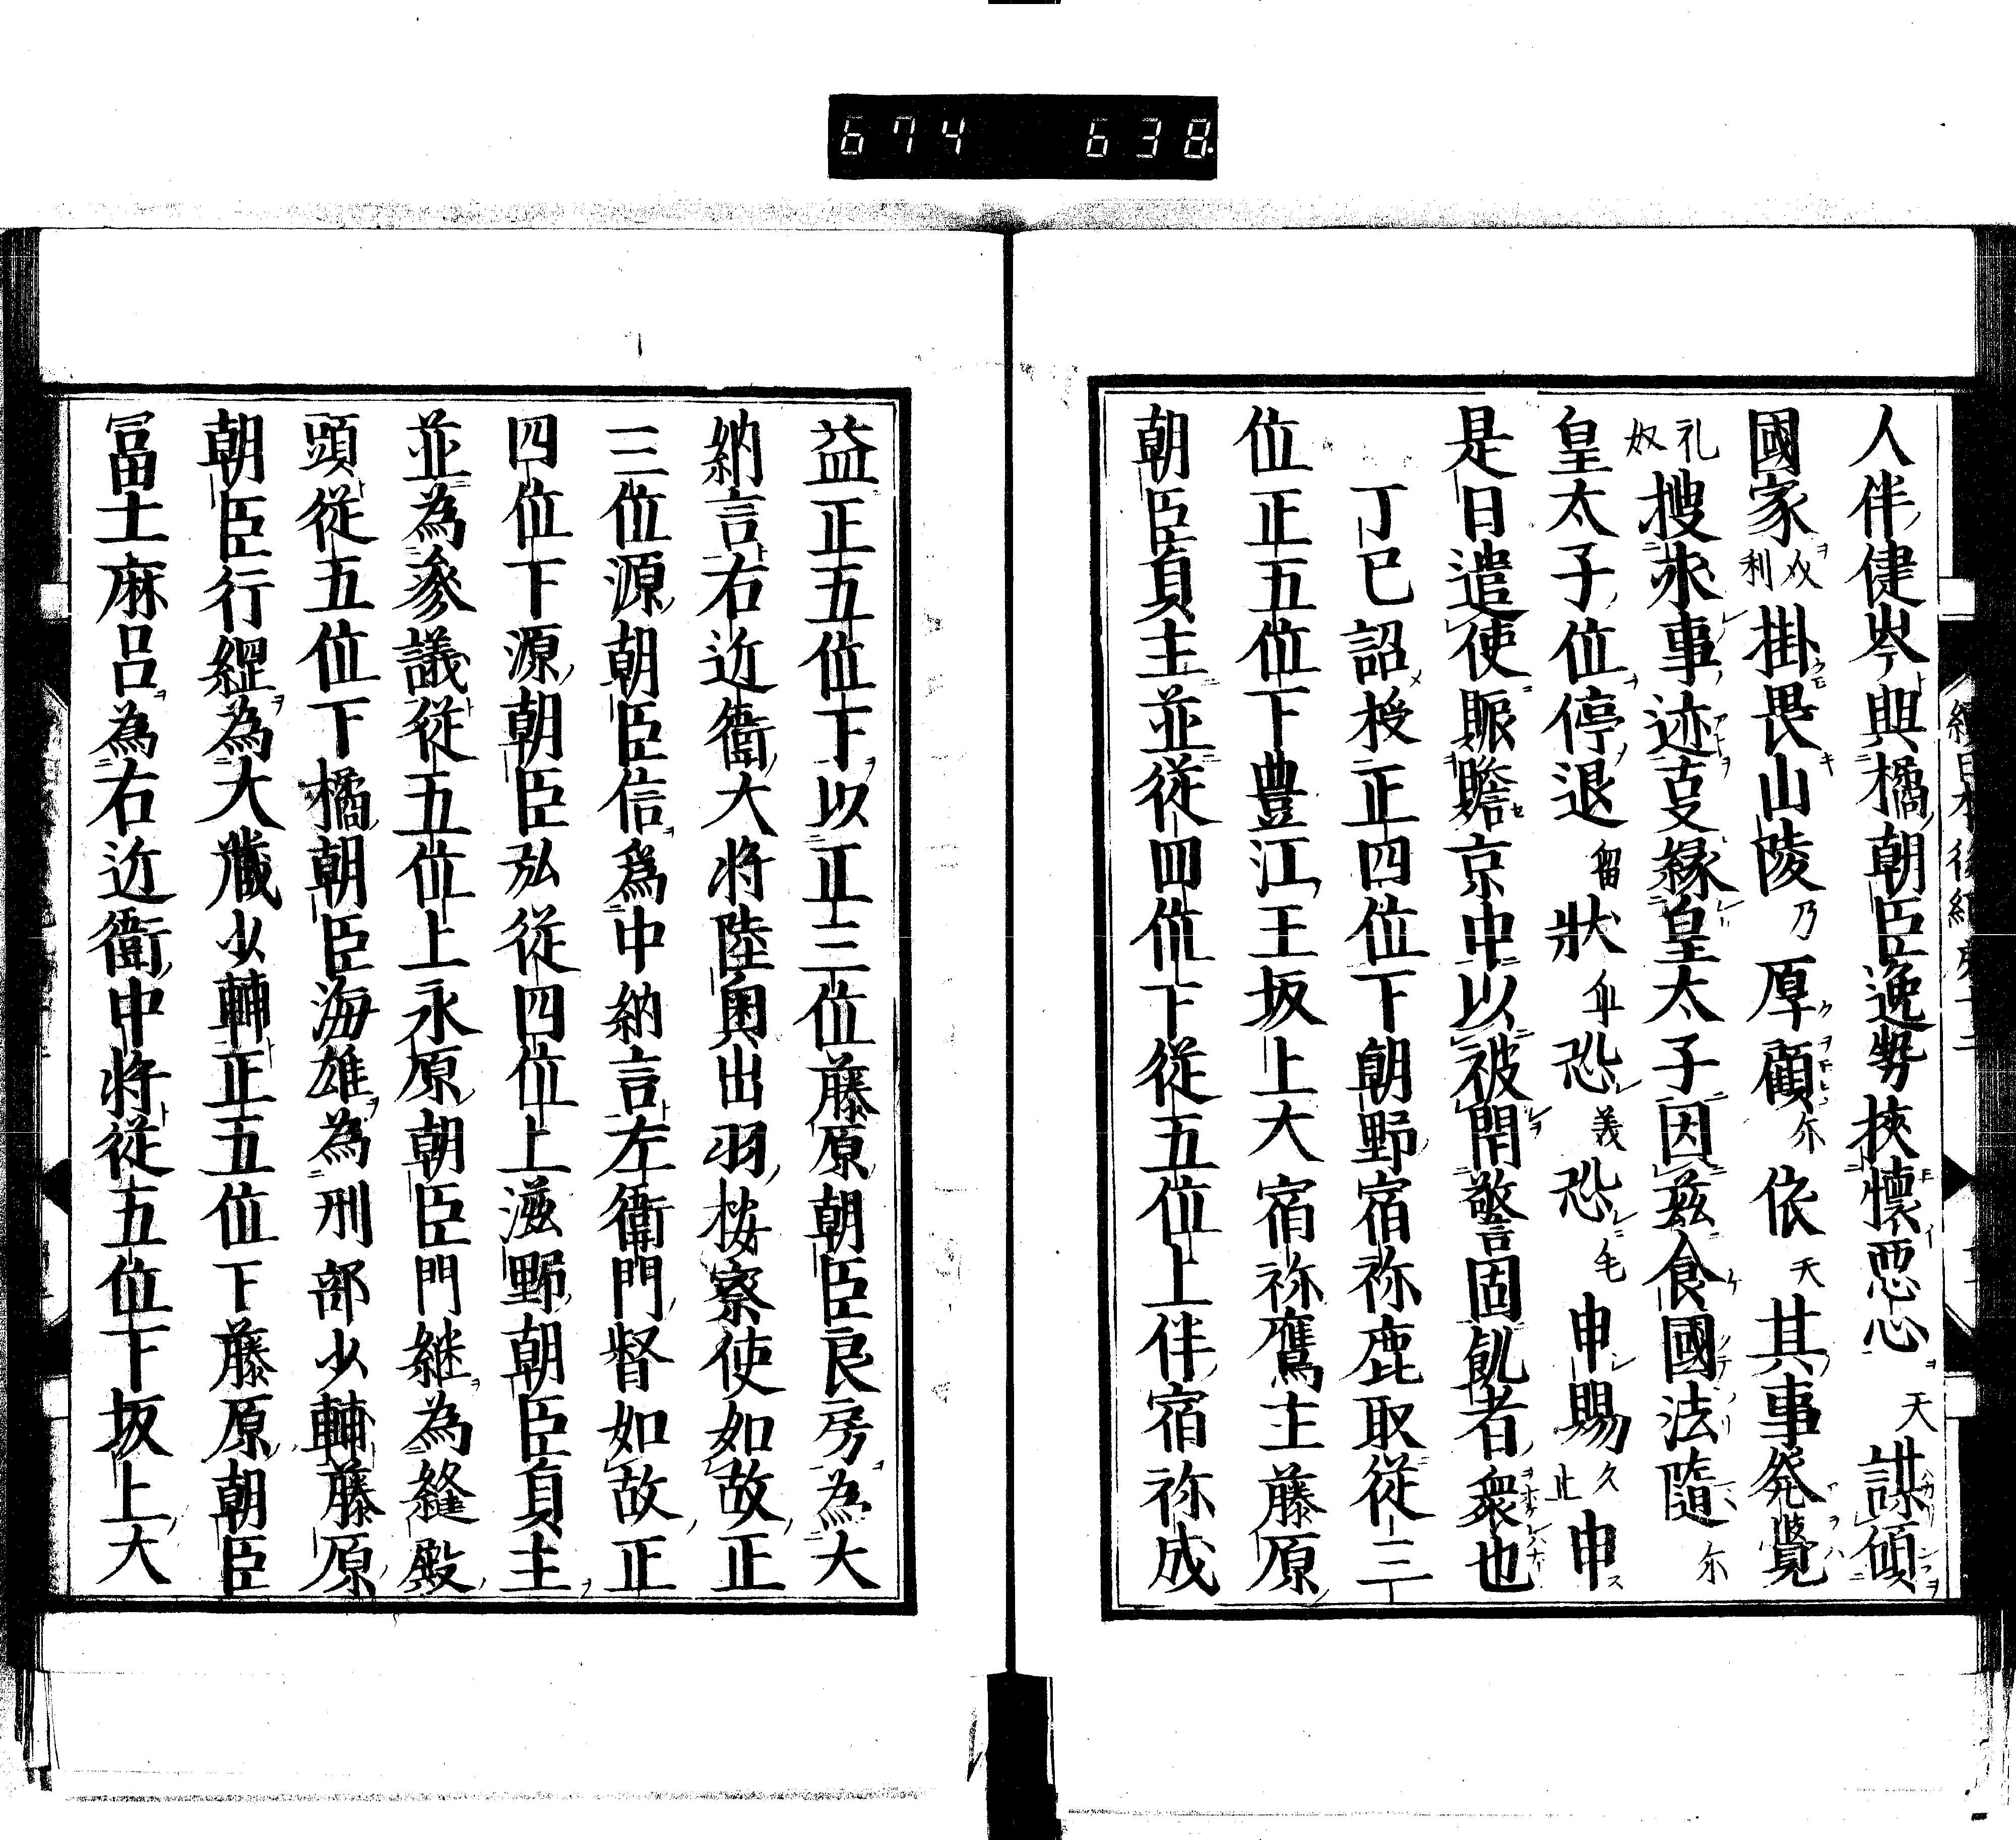 674 638
人伴健岑與橘朝臣逸勢挾懷惡心天謀傾
國家奴利掛畏山陵乃厚顧尓依天其事発覺
礼奴搜求事迹㕝縁皇太子因茲食國法隨尓
皇太子位停退留狀乎恐美恐毛申賜久止申
是日遣使賑贍京中以彼閇警固飢者衆也
丁巳詔授正四位下朝野宿祢鹿取從三
位正五位下豊江王坂上大宿祢鷹主藤原
朝臣貞主並從四位下從五位上伴宿祢成
益正五位下以正三位藤原朝臣良房為大
納言右近衛大将陸奥出羽桉察使如故正
三位源朝臣信為中納言左衛門督如故正
四位下源朝臣弘從四位上滋野朝臣貞主
並為參議從五位上永原朝臣門継為縫殿
頭從五位下橘朝臣海雄為刑部少輔藤原
朝臣行縄為大蔵少輔正五位下藤原朝臣
冨士麻呂為右近衛中将從五位下坂上大